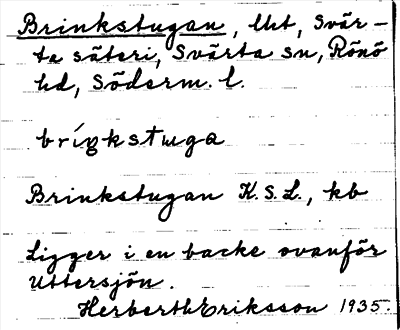 Brinkstugan, lht, Svär-
ta säteri, Svärta sn, Rönö
hd, Söderm. l.
bríŋkstɯga
Brinkstugan K.S.L., kb
Ligger i en backe ovanför
Uttersjön.
Herberth Eriksson 1935.